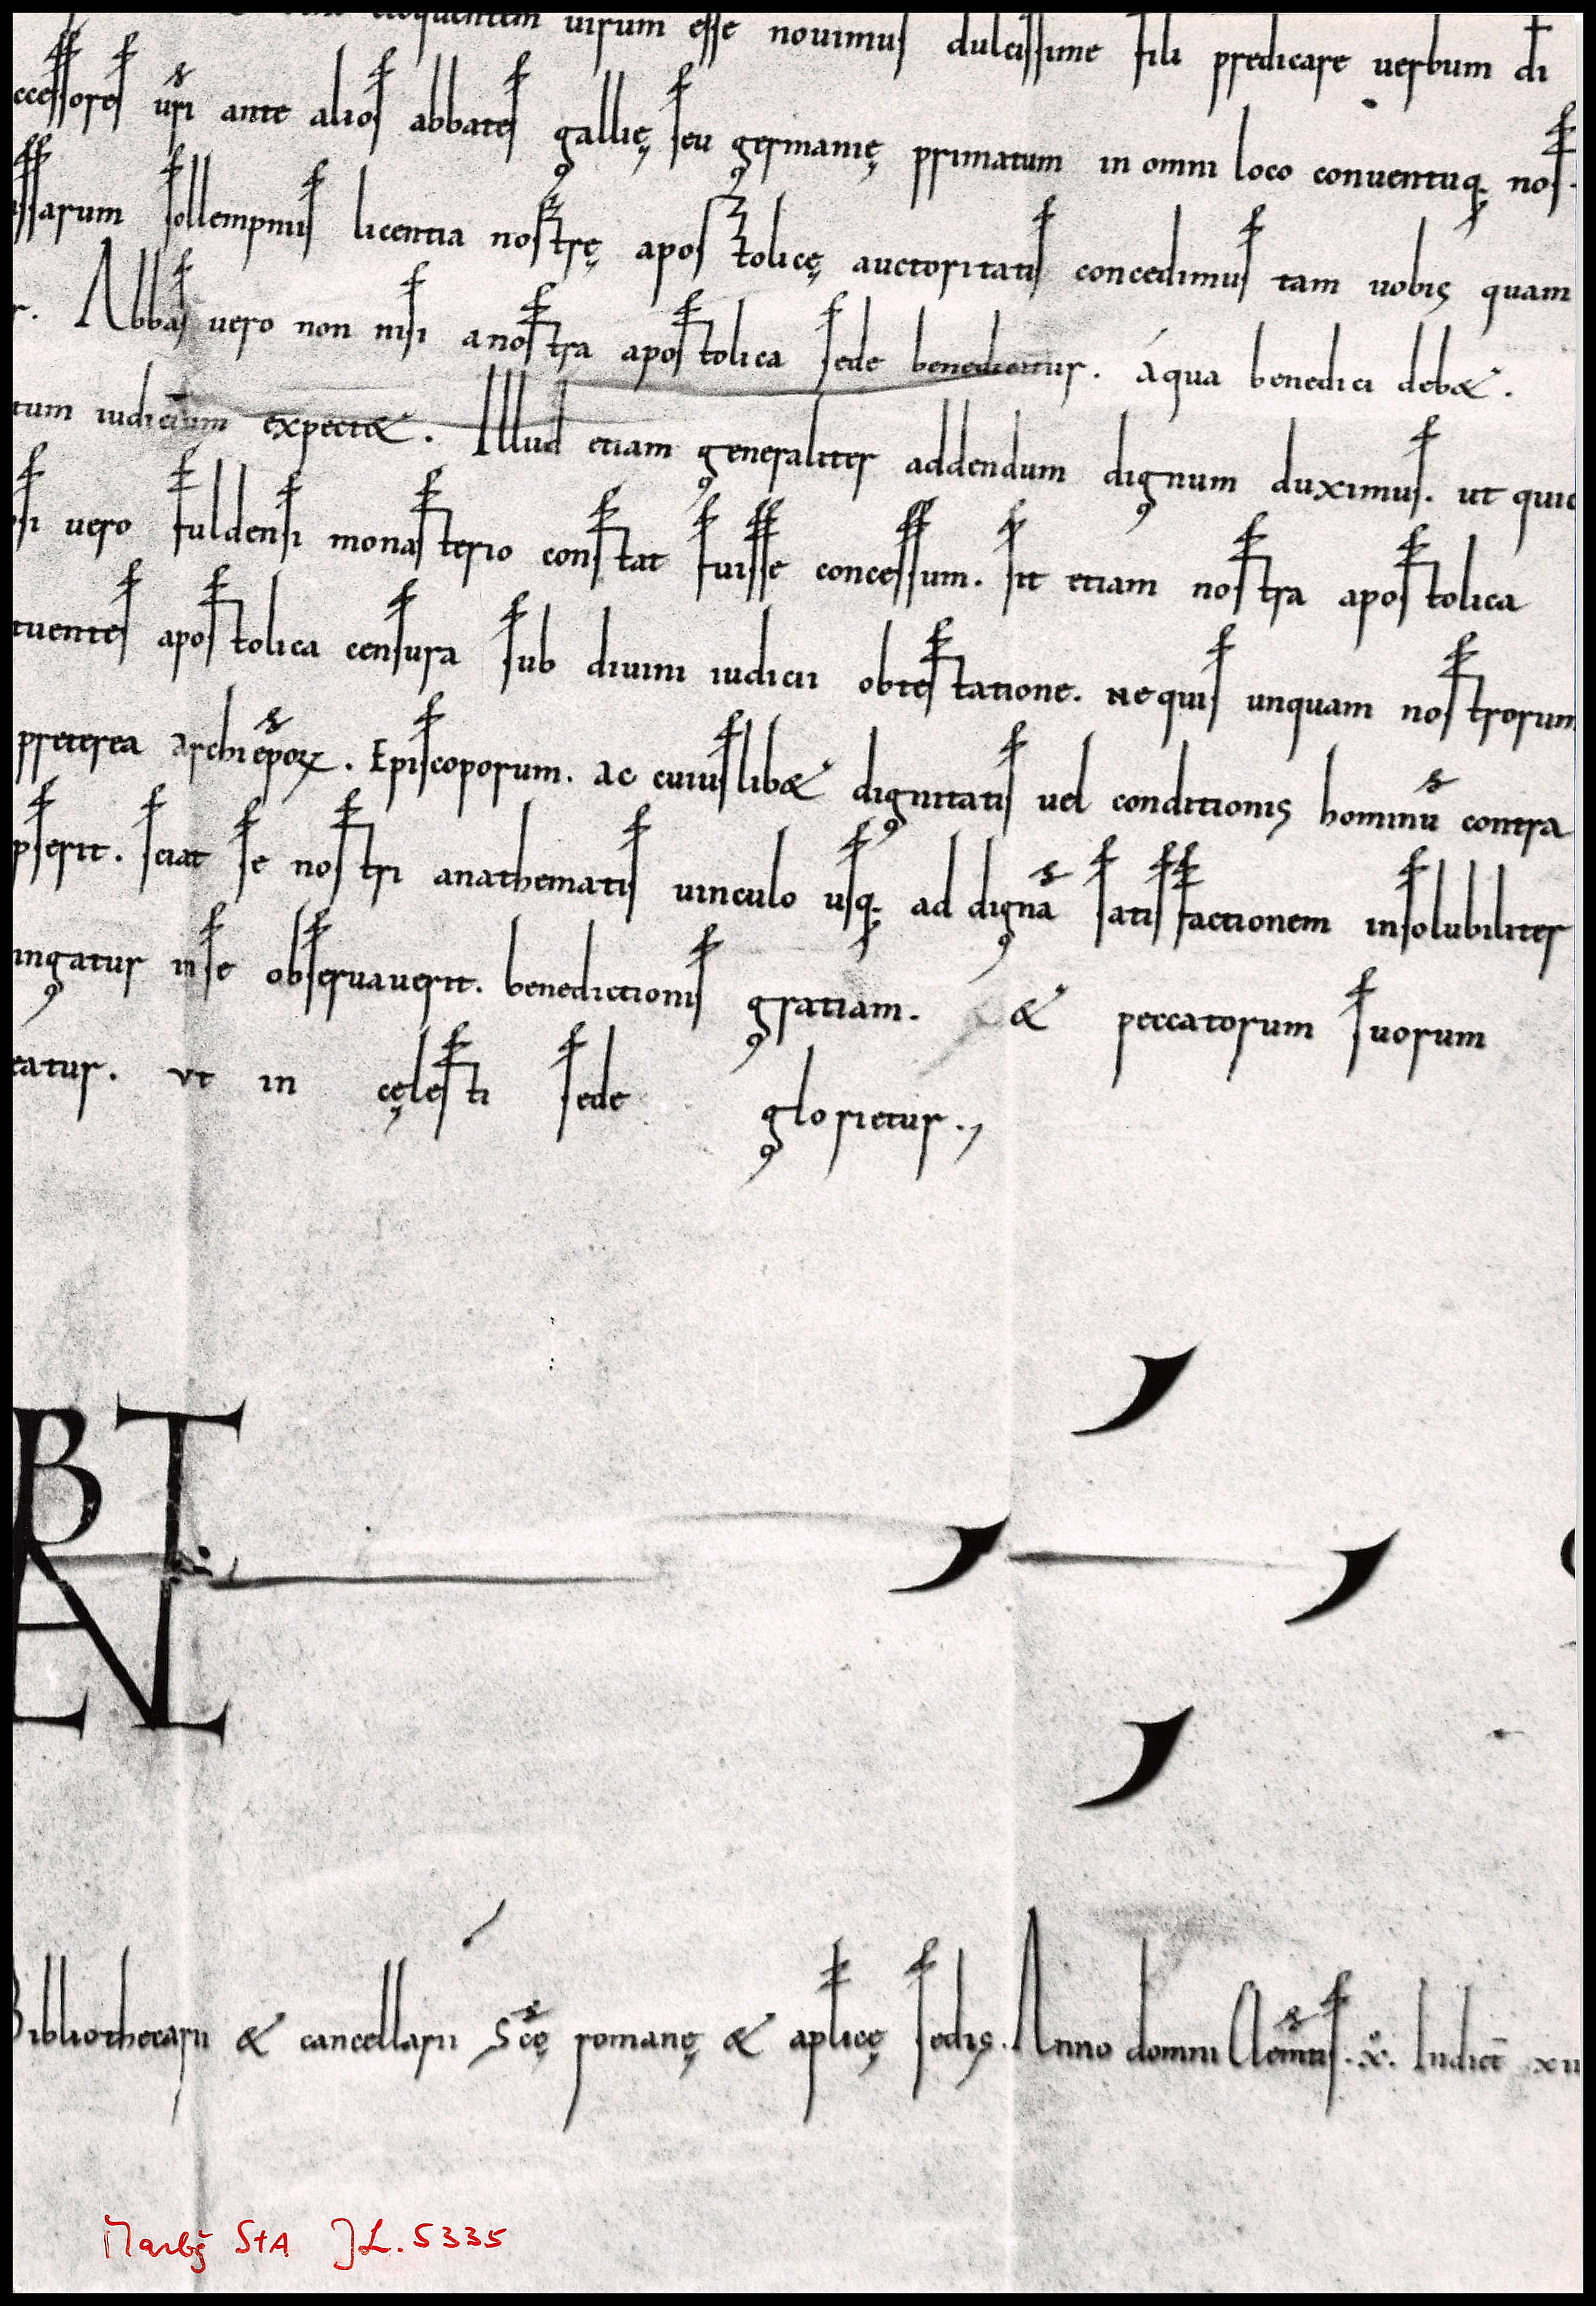 eloquentem uirum esse nouimus dulcissime fili predicare uerbum dī
ccessores ūri ante alios abbates gallię seu germanię primatum in omni loco conuentuq; nos
ssarum sollempniis licentia nostrę apostolicę auctoritatis concedimus tam uobis quam
r. Abbas uero non nisi a nostra apostolica sede benedicatur. áqua benedici deb&.
tum iudicium expect&. Illud etiam generaliter addendum dignum duximus. ut quic
si uero fuldensi monasterio constat fuisse concessum. sit etiam nostra apostolica
tuentes apostolica censura sub diuini iudicii obtestatione. ne quis unquam nostrorum
preterea archiēpoꝝ. Episcoporum. ac cuiuslib& dignitatis uel conditionis hominū contra
pserit. sciat se nostri anathematis uinculo usq; ad dignā satisfactionem insolubiliter
ingatur nise obseruauerit. benedictionis gratiam. & peccatorum suorum
eatur. ut in cęlesti sede glorietur.,
BT
NL
Bibliothecarii & cancellarii Scę romanę & aplicę sedis. Anno domni Clemtis. x. Indict xii
Marbg StA JL. 5335